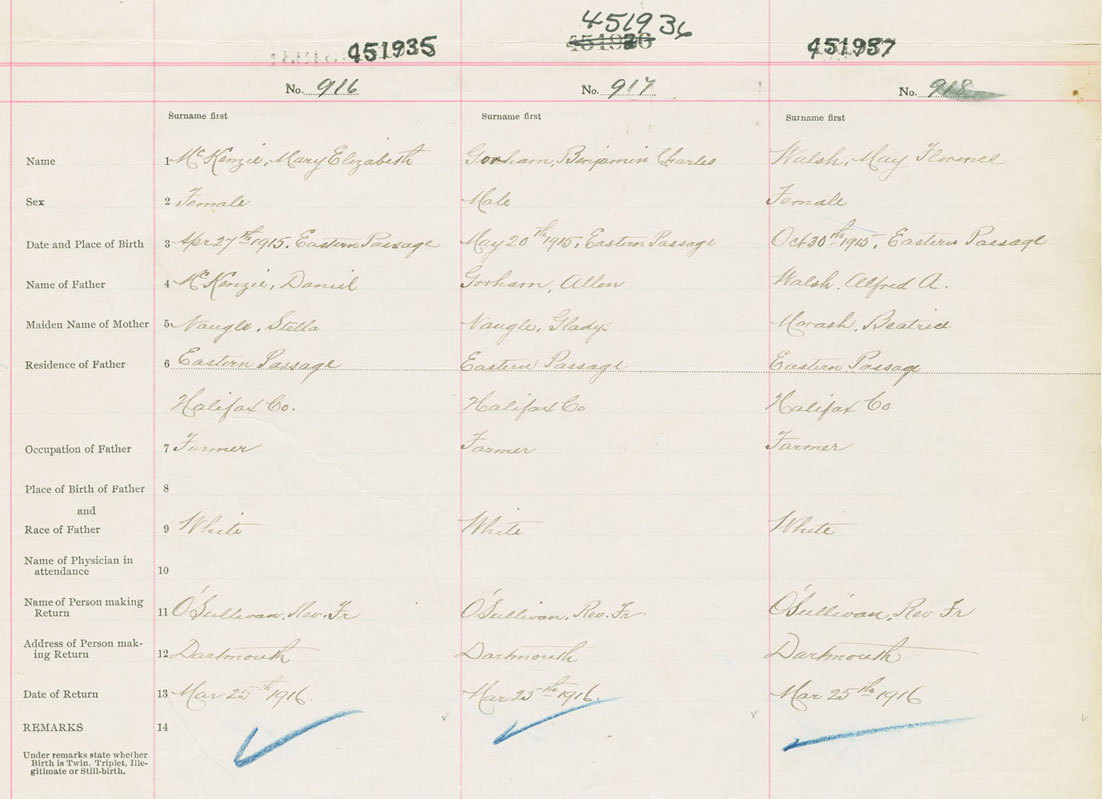 451936
451935 451926 451937
No. 916 No. 917 No. 918
Surname first Surname first Surname first
Name 1 McKenzie, Mary Elizabeth Gorham, Benjamin Charles Walsh, May Florence
Sex 2 Female Male Female
Date and Place of Birth 3 Apr 27th 1915, Eastern Passage May 20th 1915, Eastern Passage Oct 30th 1915, Eastern Passage
Name of Father 4 McKenzie, Daniel Gorham, Allen Walsh, Alfred A.
Maiden Name of Mother 5 Naugle, Stella Naugle, Gladys Morash, Beatrice
Residence of Father 6 Eastern Passage Eastern Passage Eastern Passage
Halifax Co. Halifax Co Halifax Co
Occupation of Father 7 Farmer Farmer Farmer
Place of Birth of Father 8
and
Race of Father 9 White White White
Name of Physician in
attendance 10
Name of Person making
Return 11 O'Sullivan, Rev. Fr O'Sullivan, Rev. Fr O'Sullivan, Rev Fr
Address of Person mak-
ing Return 12 Dartmouth Dartmouth Dartmouth
Date of Return 13 Mar 25th 1916. Mar 25th 1916. Mar 25th 1916
REMARKS 14
Under remarks state whether
Birth is Twin, Triplet, Ille-
gitimate or Still-birth.